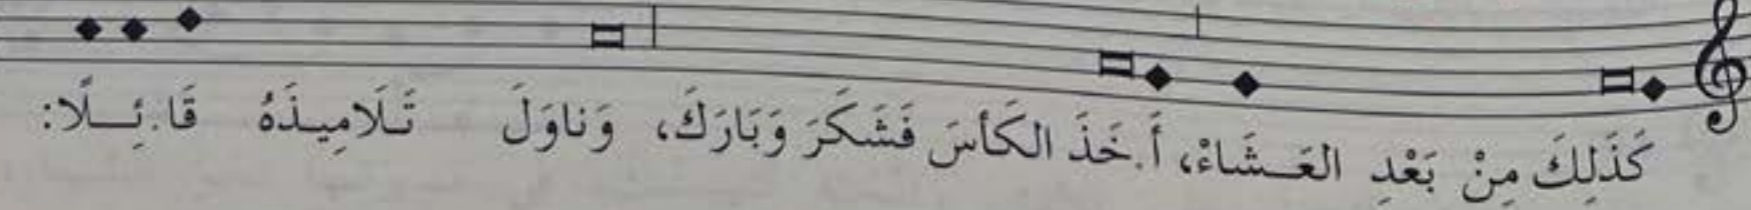 كَذَلِكَ مِنْ بَعْدِ العَـشَاءْ، أَ.خَذَ الكَأسَ فَشَكَرَ وَبَارَكَ، وَناوَلَ تَـلَامِيـذَهُ قَا.ئِـلًا: